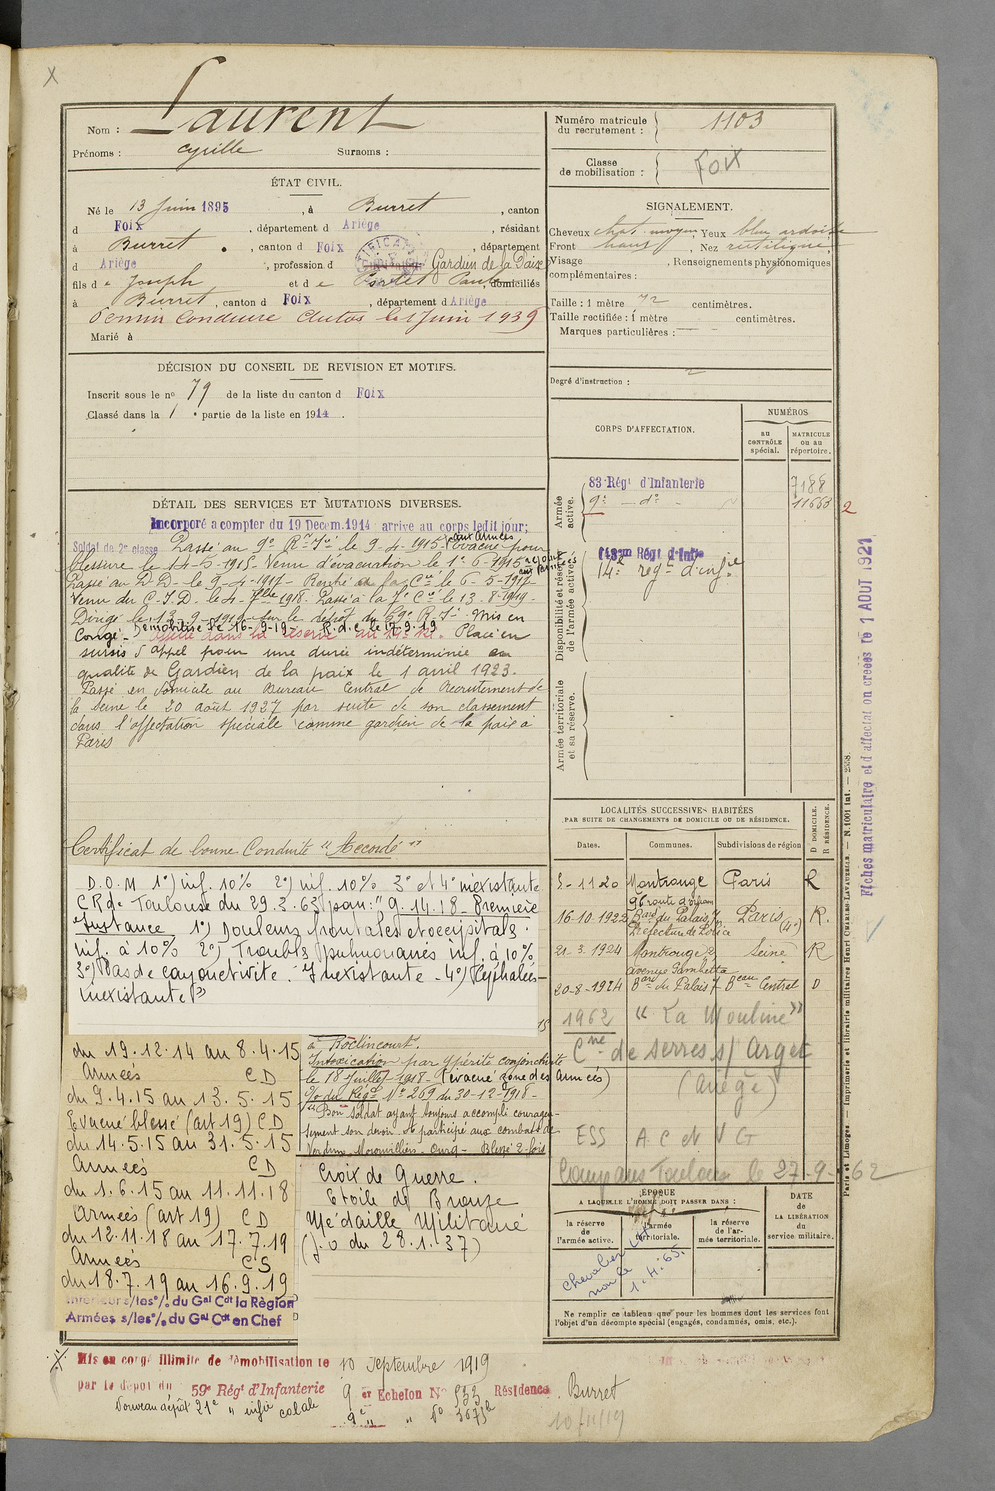 X
Nom : Laurent
Prénoms : Cyrille Surnoms :
ÉTAT CIVIL.
Né le 13 Juin 1895, à Burret, canton
d Foix, département d Ariège, résidant
à Burret, canton d Foix, département
d Ariège, profession d Gardien de la Paix
fils de Joseph et de Portet Paule domiciliés
à Burret, canton d Foix, département d Ariège
Permis Conduire Autos le 1 Juin 1939
Marié à
DÉCISION DU CONSEIL DE REVISION ET MOTIFS.
Inscrit sous le nº 79 de la liste du canton d Foix
Classé dans la 1 partie de la liste en 1914.
DÉTAIL DES SERVICES ET MUTATIONS DIVERSES.
Incorporé a compter du 19 Decem. 1914 arrive au corps ledit jour;
Soldat de 2e classe Passé au 9e R.d'I.ie le 9-4-1915 aux armées Evacué pour
blessure le 14-5-1915. Venu d'évacuation le 1er-6-1915
Passé au D.D. le 9-4-1917 - Rentré a la Cie le 6-5-1917
Venu du C.I.D. le 4-7bre 1918. Passé à la 7e Cie le 13-8-1919.
Dirigé le 13-9-1919 sur le dépôt du 59e R.I. Mis en
Congé - Démobilisé le 16-9-19 - R.d.c. le 17-9-19
Placé en
sursis d'appel pour une durée indéterminée en
qualité de Gardien de la paix le 1 avril 1923.
Passé en domicile au Bureau Central de Recrutement de
la Seine le 20 août 1927 par suite de son classement
dans l'affectation spéciale comme gardien de la paix à
Paris
Certificat de bonne Conduite "Accordé"
D.O.M 1º) inf. 10% 2º) inf. 10% 3º et 4º inexistante
C R de Toulouse du 29.3.63 pour : "9.14.18 - Première
Instance 1º) Douleurs frontales et occipitales.
inf. à 10% 2º) Troubles pulmonaires inf. à 10%
3º) Pas de conjonctivite. Inexistante - 4º) Céphalées -
inexistante"
du 19.12.14 au 8.4.15
Armées CD
du 9.4.15 au 13.5.15
Evacué blessé (art 19) CD
du 14.5.15 au 31.5.15
Armées CD
du 1.6.15 au 11.11.18
Armées (art 19) CD
du 12.11.18 au 17.7.19
Armées CS
du 18.7.19 au 16.9.19
Intérieur s/les º/. du Gal Cdt la Région
Armées s/les º/. du Gal Cdt en Chef
à Roclincourt.
Intoxication par ypérite conjonctivite
le 18 juillet 1918 - (évacué zone des armées)
O/ du Régt Nº 269 du 30-12-1918 -
"Bon soldat ayant toujours accompli courageu-
sement son devoir, a participé aux combats de
Verdun, Moronvilliers, Ourcq - Blessé 2 fois
Croix de Guerre.
Etoile de Bronze
Médaille Militaire
(J.O du 28.1.37)
Numéro matricule du recrutement : 1103
Classe de mobilisation : Foix
SIGNALEMENT.
Cheveux chat. moyen, Yeux bleu ardoise
Front haut, Nez rectiligne
Visage , Renseignements physionomiques
complémentaires :
Taille : 1 mètre 72 centimètres.
Taille rectifiée : 1 mètre centimètres.
Marques particulières :
Degré d'instruction : 2
CORPS D'AFFECTATION.
NUMÉROS
au CONTRÔLE spécial.
MATRICULE ou au répertoire.
Armée active.
83e Régt d'Infanterie 7188
9e - do - 11668
2
Disponibilité et réserve de l'armée active.
14e régt d'infie
Armée territoriale et sa réserve.
LOCALITÉS SUCCESSIVES HABITÉES
PAR SUITE DE CHANGEMENTS DE DOMICILE OU DE RÉSIDENCE.
Dates. Communes. Subdivisions de région
D DOMICILE. R RÉSIDENCE.
5-11-20 Montrouge Paris R
96 route d'Orléans
16-10-1922 Bard du Palais, 7 Paris (4e) R.
Préfecture de Police
21-3-1924 Montrouge Seine R
avenue Gambetta
20-8-1924 Bard du Palais 7 Beau Central D
1962 "La Mouline"
Cne de Serres s/ Arget
(Ariège)
ESS A C et V G
Toulouse le 27-9-62
ÉPOQUE
A LAQUELLE L'HOMME DOIT PASSER DANS :
la réserve de l'armée active.
l'armée territoriale.
la réserve de l'armée territoriale.
DATE de LA LIBÉRATION du service militaire.
Chevalier
1.4.65.
Ne remplir ce tableau que pour les hommes dont les services font
l'objet d'un décompte spécial (engagés, condamnés, omis, etc.).
Fiches matriculaire et d'affectation créées le 1 AOUT 1921
Paris et Limoges. — Imprimerie et librairie militaires Henri CHARLES-LAVAUZELLE. — N. 1001 int. — 2558.
Mis en congé illimité de démobilisation le 10 Septembre 1919
par le dépôt du 59e Régt d'Infanterie 9 er Echelon Nº 533 Résidence Burret
Nouveau dépôt 21e " infie colale 9e " " Nº
10/11/19